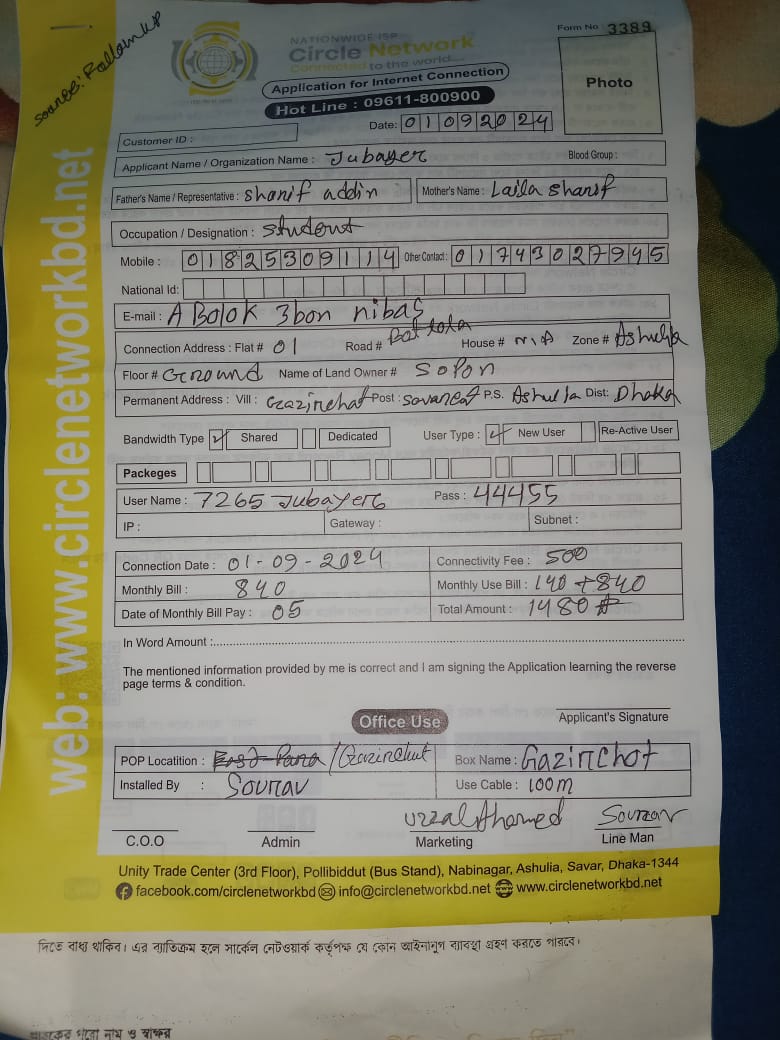 Source: Followup
Form No 3389
NATIONWIDE ISP
Circle Network
Connected to the world...
Application for Internet Connection
Hot Line : 09611-800900
Photo
Date: 01092024
Customer ID :
Applicant Name / Organization Name : Jubayer Blood Group :
Father's Name / Representative : Sharif addin Mother's Name : Laila Sharif
Occupation / Designation : Student
Mobile : 01825309114 Other Contact : 01743027945
National Id:
E-mail : A Bolok 3bon nibas
Connection Address : Flat # 01 Road # Bottola House # N,A Zone # Ashulia
Floor # Ground Name of Land Owner # Sopon
Permanent Address : Vill : Gazirchat Post : P.S. Ashulia Dist: Dhaka
Bandwidth Type Shared Dedicated User Type : New User Re-Active User
Packeges
User Name : 7265 Pass : 44455
IP : Gateway : Subnet :
Connection Date : 01-09-2024 Connectivity Fee : 500
Monthly Bill : 840 Monthly Use Bill : 140 + 840
Date of Monthly Bill Pay : 05 Total Amount : 1480 #
In Word Amount :
The mentioned information provided by me is correct and I am signing the Application learning the reverse
page terms & condition.
Office Use
Applicant's Signature
POP Locatition : East Para / Gazirchat Box Name : Gazirchot
Installed By : Sourav Use Cable : 100m
Uzzal Ahamed Sourav
C.O.O Admin Marketing Line Man
Unity Trade Center (3rd Floor), Pollibiddut (Bus Stand), Nabinagar, Ashulia, Savar, Dhaka-1344
facebook.com/circlenetworkbd info@circlenetworkbd.net www.circlenetworkbd.net
web: www.circlenetworkbd.net
দিতে বাধ্য থাকিব। এর ব্যতিক্রম হলে সার্কেল নেটওয়ার্ক কর্তৃপক্ষ যে কোন আইনানুগ ব্যবস্থা গ্রহণ করতে পারবে।
নাম ও স্বাক্ষর